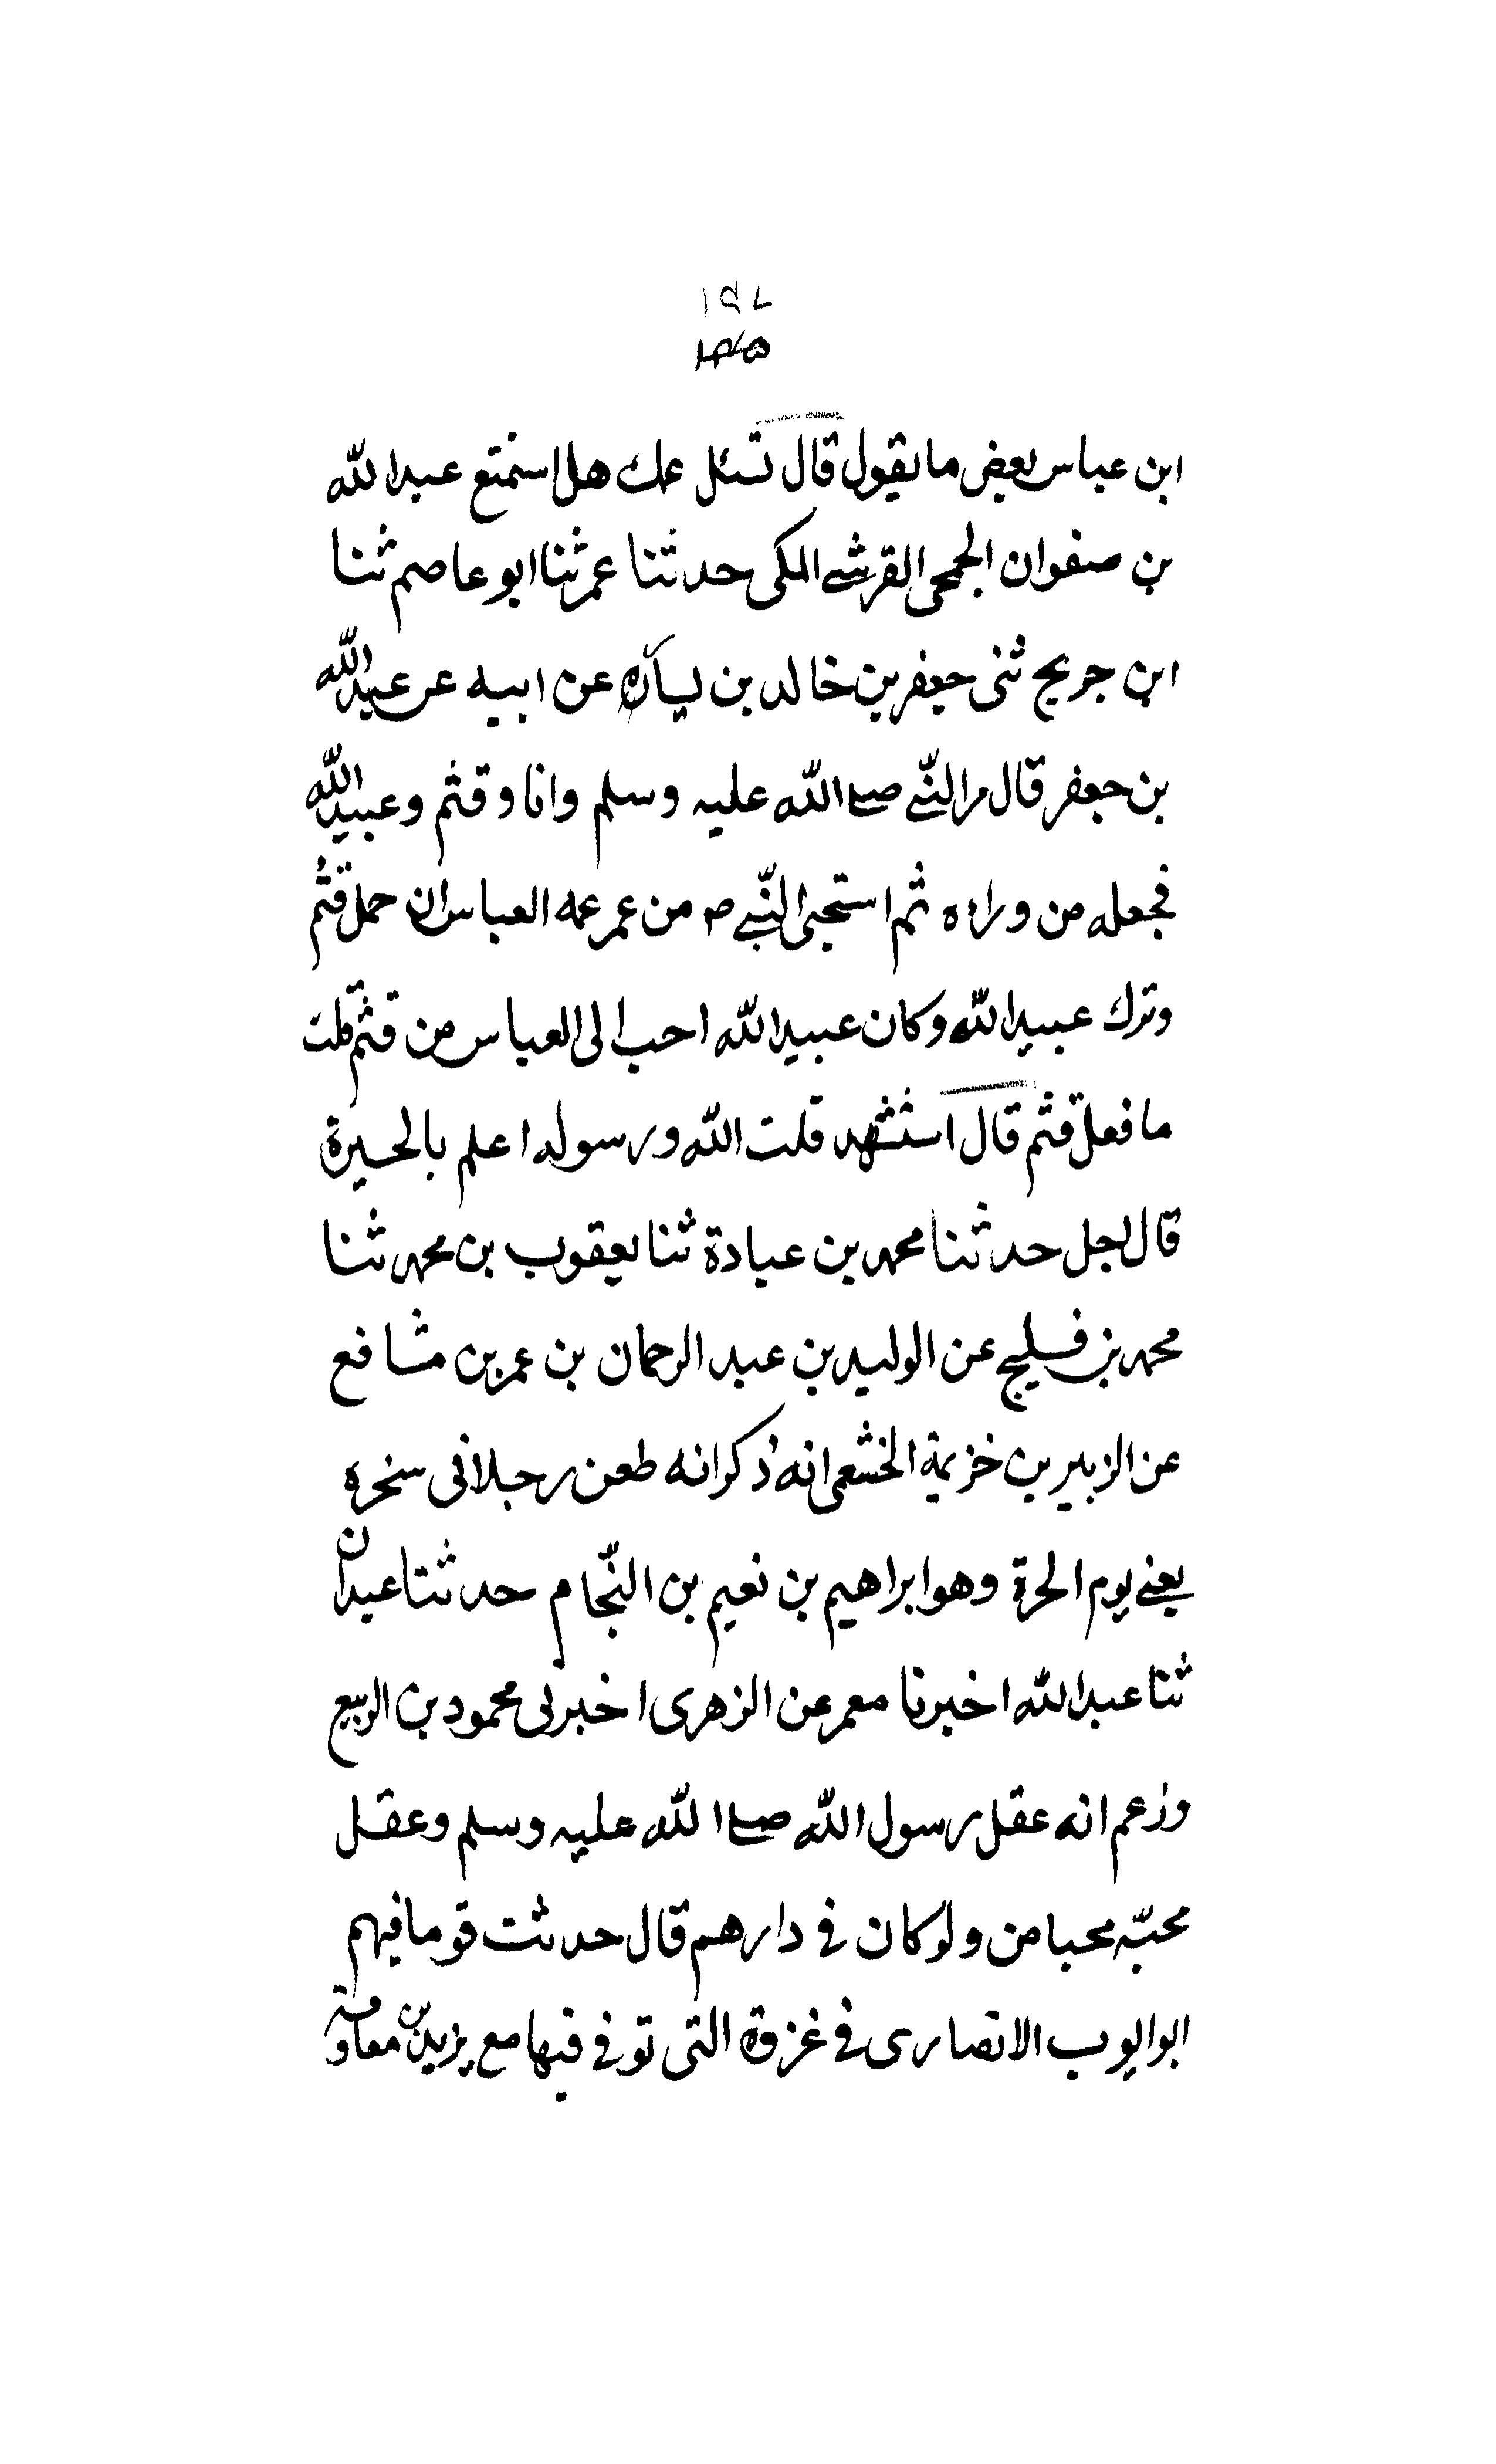 ابن عباس بعض ما يقول قال تسئل عمك هل استمتع عبد الله
بن صفوان الجمحى القرشى المكى حدثنا عمر ثنا ابو عاصم ثنا
ابن جريج ثنى جعفر بن خالد بن ساره عن ابيه عن عبد الله
بن جعفر قال مر النبى صلى الله عليه وسلم وانا وقثم وعبيد الله
فجعله من وراءه ثم استحيى النبى ص من عمر عمه العباس ان حمل قثم
وترك عبيد الله وكان عبيد الله احب الى العباس من قثم قلت
ما فعل قثم قال استشهد قلت الله ورسوله اعلم بالخيرة
قال اجل حدثنا محمد بن عبادة ثنا يعقوب بن محمد ثنا
محمد بن فليح عن الوليد بن عبد الرحمان بن عمر بن مشافع
عن الزبير بن خزيمة الخثعمى انه ذكر انه طعن رجلا فى سخره
يعنى يوم الحرة وهو ابراهيم بن نعيم بن النّجام حدثنا عبدان
ثنا عبد الله اخبرنا معمر عن الزهرى اخبرنى محمود بن الربيع
وزعم انه عقل رسول الله صلى الله عليه وسلم وعقل
محبّه محبا من ولو كان فى دارهم قال حدثت قوما فيهم
ابو ايوب الانصارى فى غزوة التى توفى فيها مع يزيد بن معاوية